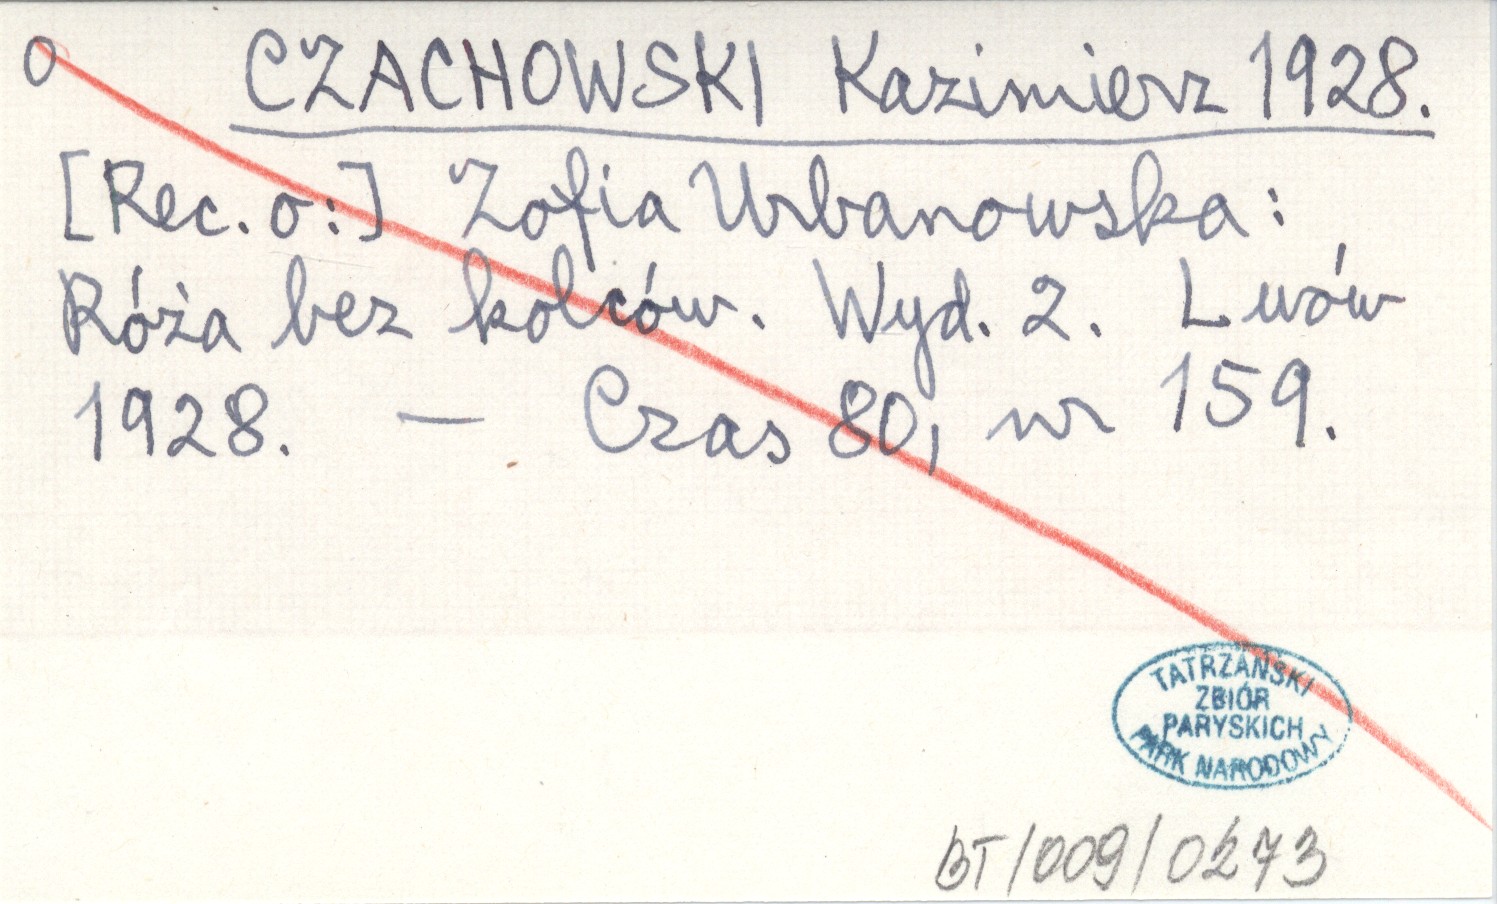 o CZACHOWSKI Kazimierz 1928.
[Rec. o:] Zofia Urbanowska:
Róża bez kolców. Wyd. 2. Lwów
1928. — Czas 80, nr 159.
TATRZAŃSKI
ZBIÓR
PARYSKICH
PARK NARODOWY
BT/009/0273